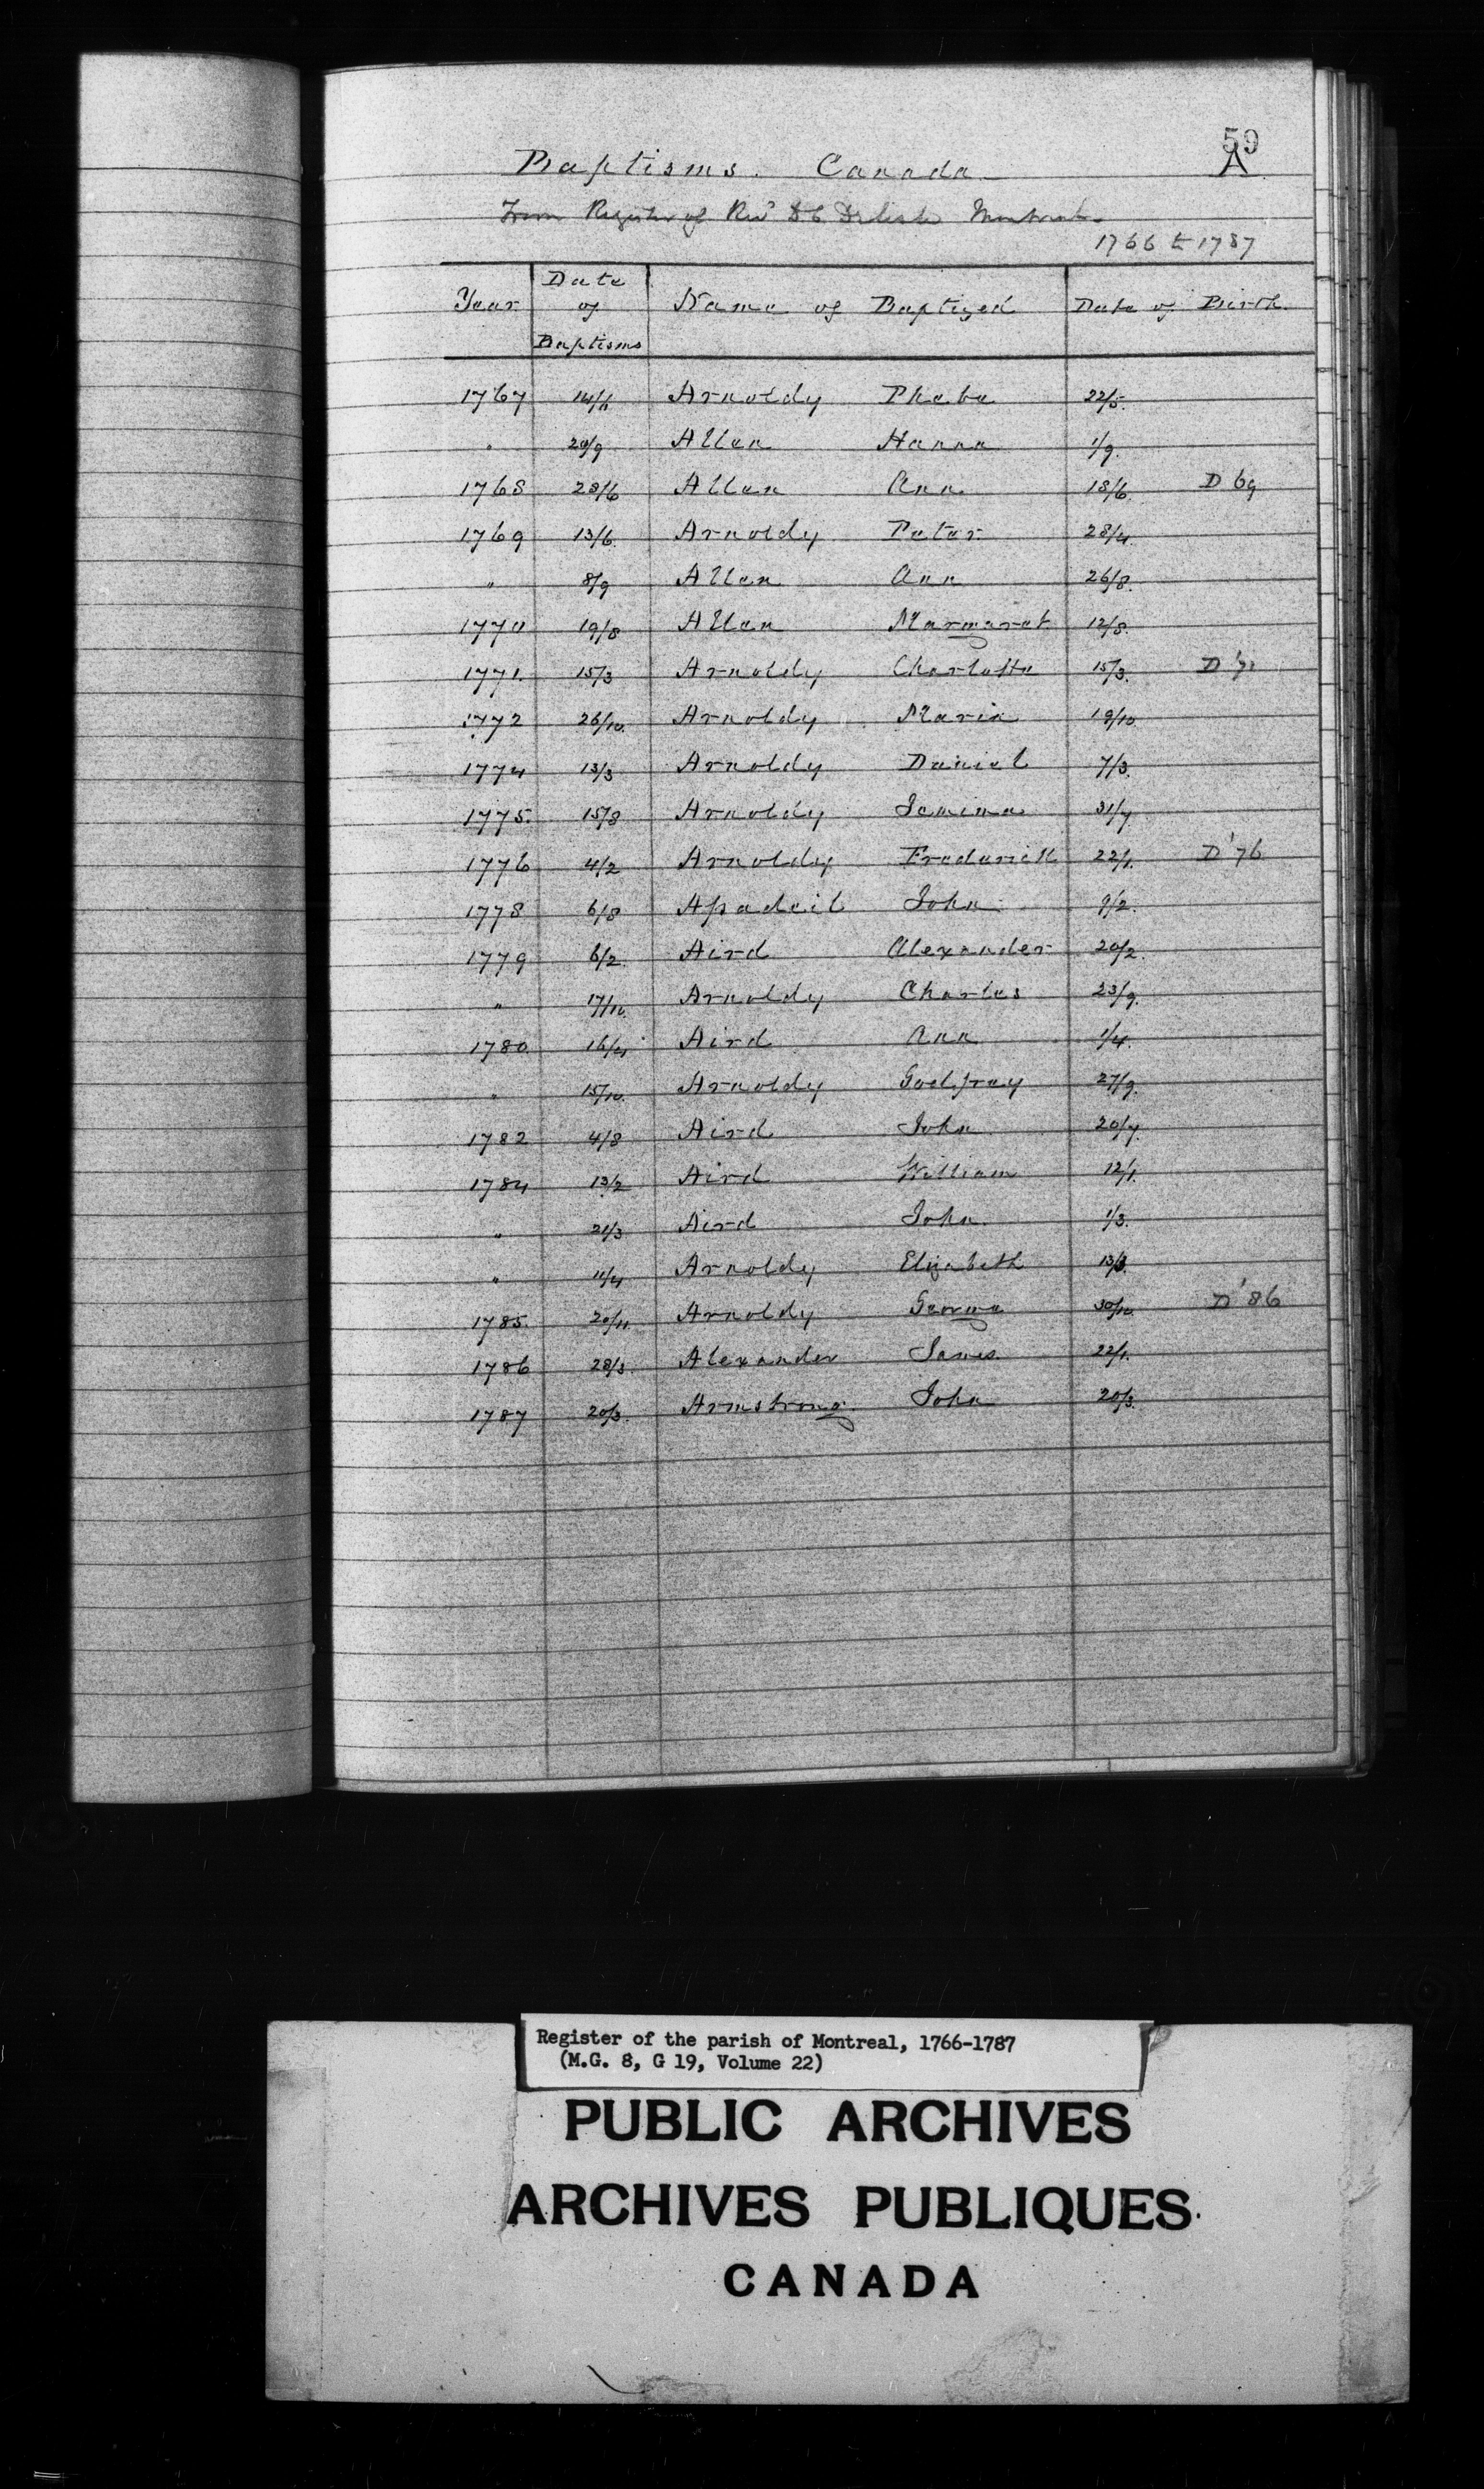 59
A
Baptisms. Canada
From Register of Revd D C Delisle Montreal
1766 to 1787
Year Date of Baptisms Name of Baptized Date of Birth
1767 14/11 Arnoldy Phebe 22/5.
" 20/9 Allen Hanna 1/9.
1768 28/6 Allen Ann 18/6. D 69
1769 13/6. Arnoldy Peter 28/4.
" 8/9 Allen Ann 26/8.
1770 19/8 Allen Margaret 12/8.
1771. 15/3 Arnoldy Charlotte 15/3. D '71
1772 26/10. Arnoldy Maria 19/10.
1774 13/3 Arnoldy Daniel 7/3.
1775. 15/8 Arnoldy Jemima 31/7
1776 4/2 Arnoldy Frederick 22/1. D '76
1778 6/8 Apadeil John 9/2.
1779 6/2. Aird Alexander 20/2.
" 17/10. Arnoldy Charles 23/9.
1780. 16/4 Aird Ann 1/4.
" 15/10. Arnoldy Godfrey 27/9.
1782 4/8 Aird John 20/7.
1784 13/2 Aird William 12/1.
" 21/3 Aird John. 1/3.
" 11/4 Arnoldy Elizabeth 13/3.
1785. 20/11. Arnoldy George 30/10. D '86
1786 28/3 Alexander James. 22/1.
1787 20/3. Armstrong. John 20/3.
Register of the parish of Montreal, 1766-1787
(M.G. 8, G 19, Volume 22)
PUBLIC ARCHIVES
ARCHIVES PUBLIQUES
CANADA